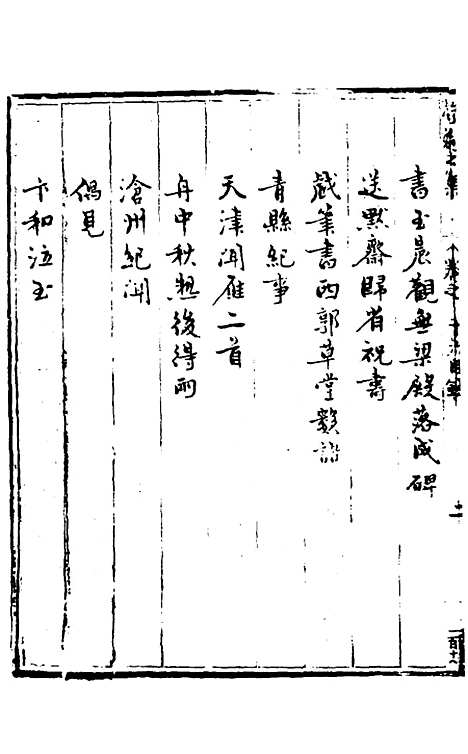 書玉晨觀無梁殿落成碑
送默齋歸省祝壽
戲筆書西郭草堂
青縣紀事
天津聞雁二首
舟中秋熱後得雨
滄州紀聞
偶見
卞和泣玉